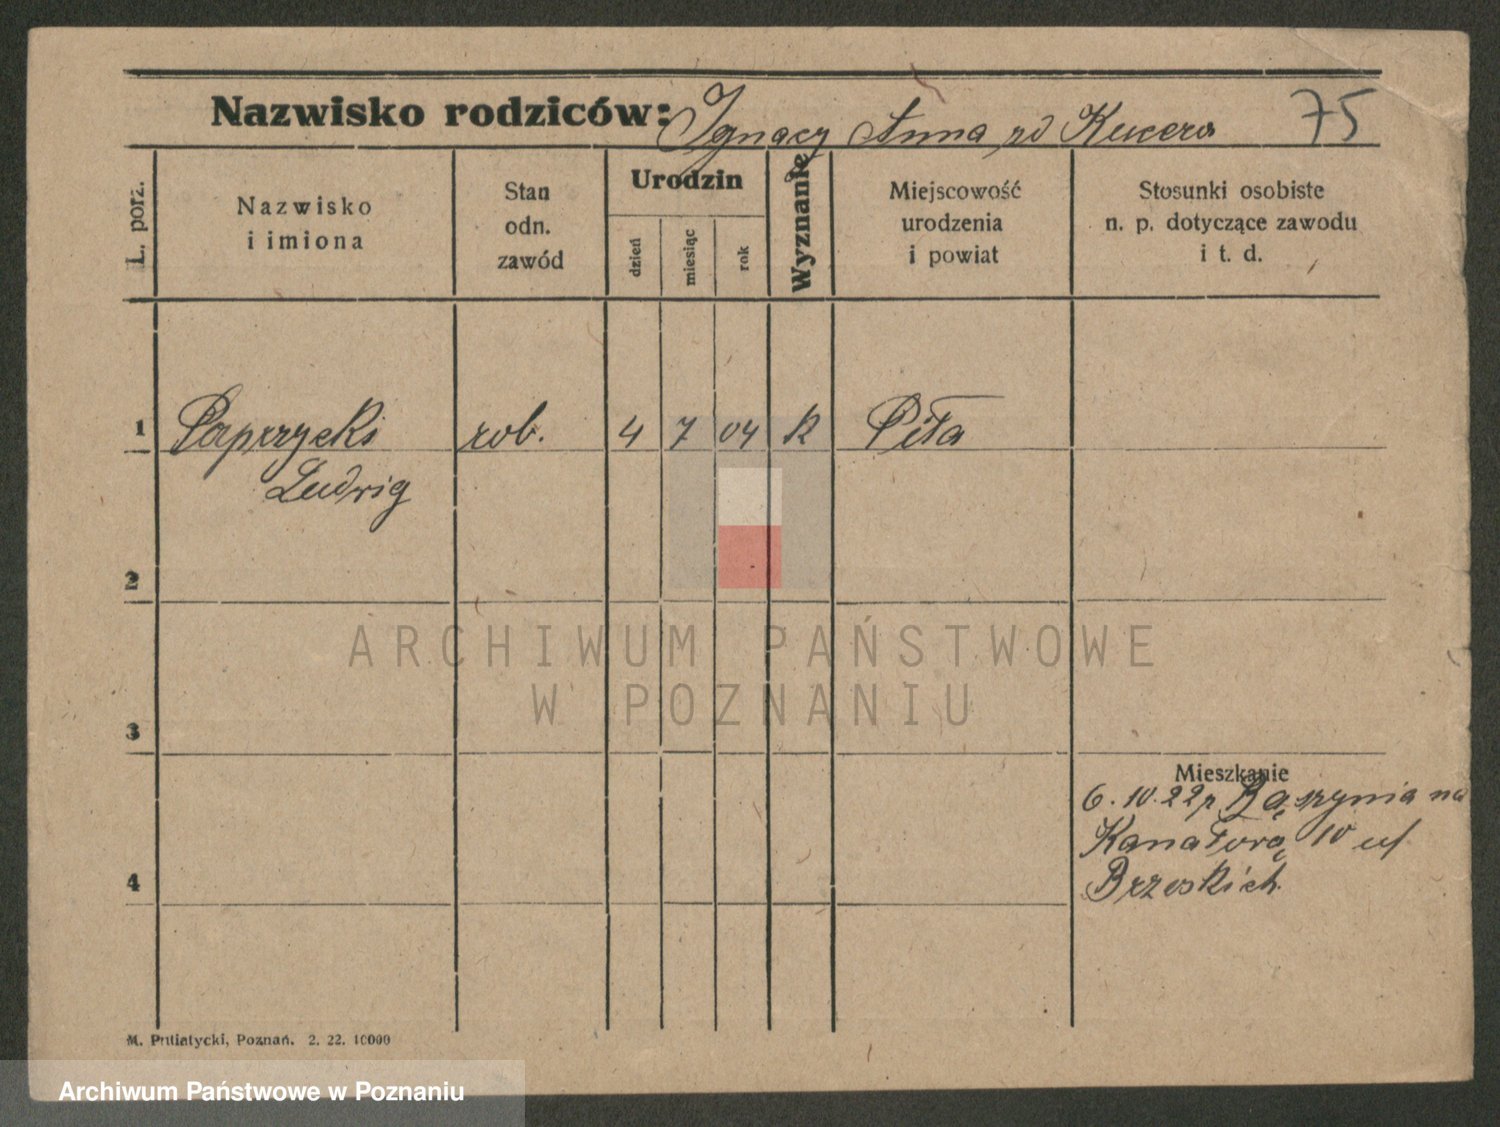 Nazwisko rodziców: Ignacy Anna rd Kucera 75
L. porz.
Nazwisko
i imiona
Stan
odn.
zawód
Urodzin
dzień
miesiąc
rok
Wyznanie
Miejscowość
urodzenia
i powiat
Stosunki osobiste
n. p. dotyczące zawodu
i t. d.
1 Paprzycki rob. 4 7 04 R Piła
Ludwig
2
ARCHIWUM PAŃSTWOWE
W POZNANIU
3
Mieszkanie
6.10.22 na
Kanałową 10 u
4 Brzeskich
M. Putiatycki, Poznań. 2. 22. 10000
Archiwum Państwowe w Poznaniu